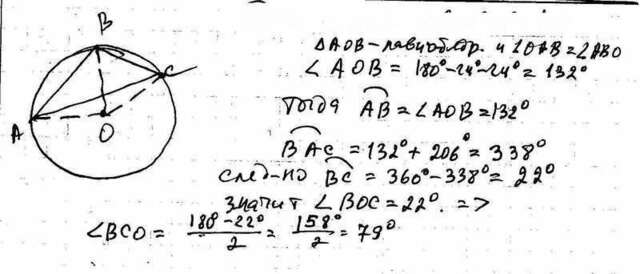 B
C
A
O
ΔAOB – равнобедр. и ∠OAB = ∠ABO
∠AOB = 180° - 24° - 24° = 132°
Тогда AB = ∠AOB = 132°
BAC = 132° + 206° = 338°
след-но BC = 360° - 338° = 22°
значит ∠BOC = 22°. =>
∠BCO = (180° - 22°)/2 = 158°/2 = 79°